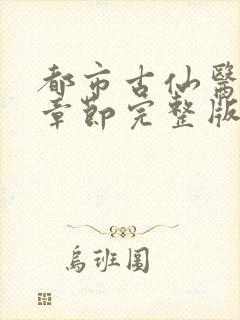 都市古仙醫
章節完整版
烏班圖